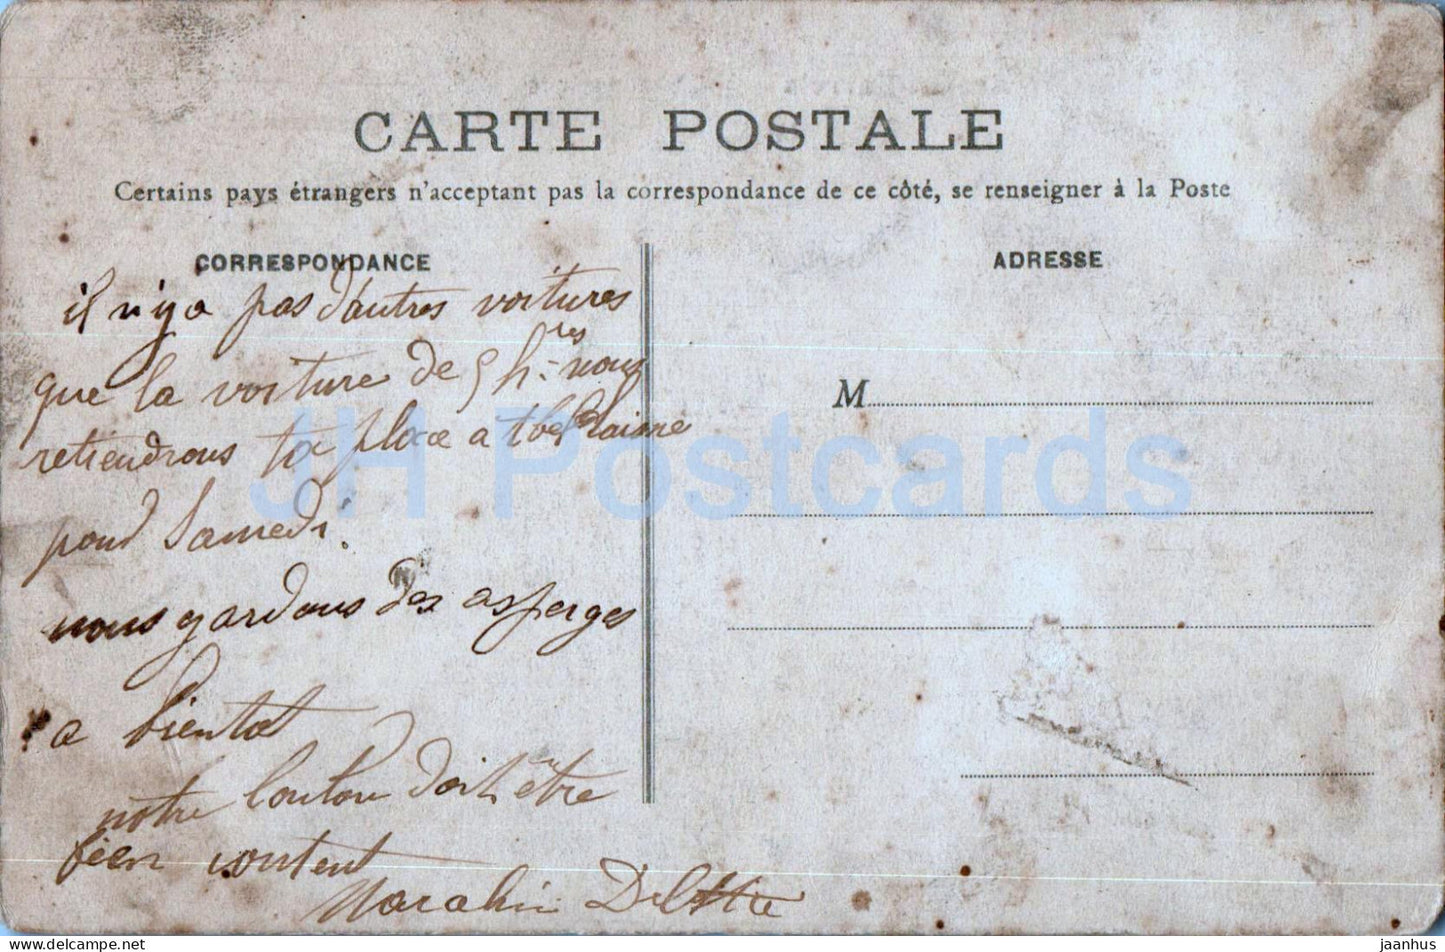 CARTE POSTALE
Certains pays étrangers n'acceptant pas la correspondance de ce côté, se renseigner à la Poste
CORRESPONDANCE
ADRESSE
il n'y a pas d'autres voitures
que la voiture de 5 h-res nous
retiendrons ta place a
pour Samedi.
nous gardons des asperges
a bientot
notre loulou doit être
bien content
M
JH Postcards
jaanhus
delcampe.net